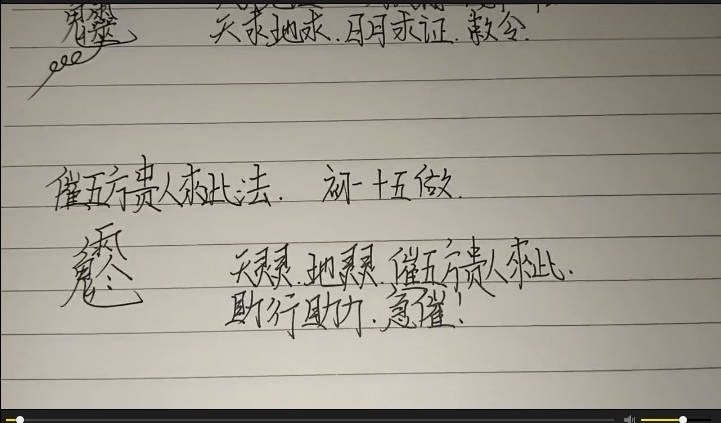 天求地求.日月求证.敕令.
催五方贵人来此法. 初一十五做.
天灵灵.地灵灵.催五方贵人来此.
助行助力.急催!